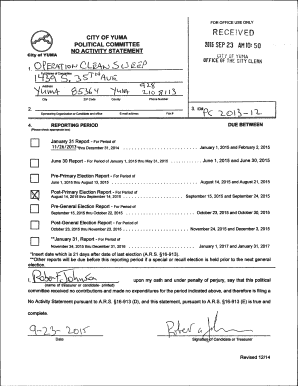 FOR OFFICE USE ONLY
RECEIVED
2015 SEP 23 AM 10:50
CITY OF YUMA
OFFICE OF THE CITY CLERK
City of YUMA
CITY OF YUMA
POLITICAL COMMITTEE
NO ACTIVITY STATEMENT
1. OPERATION CLEAN SWEEP
1439 S. 35TH AVE
Address
YUMA 85364 YUMA 928
210 8113
City ZIP Code County Phone Number
2.
Sponsoring Organization or Candidate and office E-mail address Fax #
3. ID# PC 2013-12
4. REPORTING PERIOD DUE BETWEEN
(Please check appropriate box)
January 31 Report - For Period of
11/26/2013 thru December 31, 2014 January 1, 2015 and February 2, 2015
June 30 Report - For Period of January 1, 2015 thru May 31, 2015 June 1, 2015 and June 30, 2015
Pre-Primary Election Report - For Period of
June 1, 2015 thru August 13, 2015 August 14, 2015 and August 21, 2015
Post-Primary Election Report - For Period of
August 14, 2015 thru September 14, 2015 September 15, 2015 and September 24, 2015
Pre-General Election Report - For Period of
September 15, 2015 thru October 22, 2015 October 23, 2015 and October 30, 2015
Post-General Election Report - For Period of
October 23, 2015 thru November 23, 2015 November 24, 2015 and December 3, 2015
**January 31, Report - For Period of
November 24, 2015 thru December 31, 2016 January 1, 2017 and January 31, 2017
*Insert date which is 21 days after date of last election (A.R.S. §16-913).
**Other reports will be due before this reporting period if a special or recall election is held prior to the next general
election.
I, Robert F. Johnson upon my oath and under penalty of perjury, say that this political
(name of treasurer or candidate printed)
committee received no contributions and made no expenditures for the period indicated above, and therefore is filing a
No Activity Statement pursuant to A.R.S. §16-913 (D), and this statement, pursuant to A.R.S. §16-913 (E) is true and
complete.
9-23-2015
Date Signature of Candidate or Treasurer
Revised 12/14